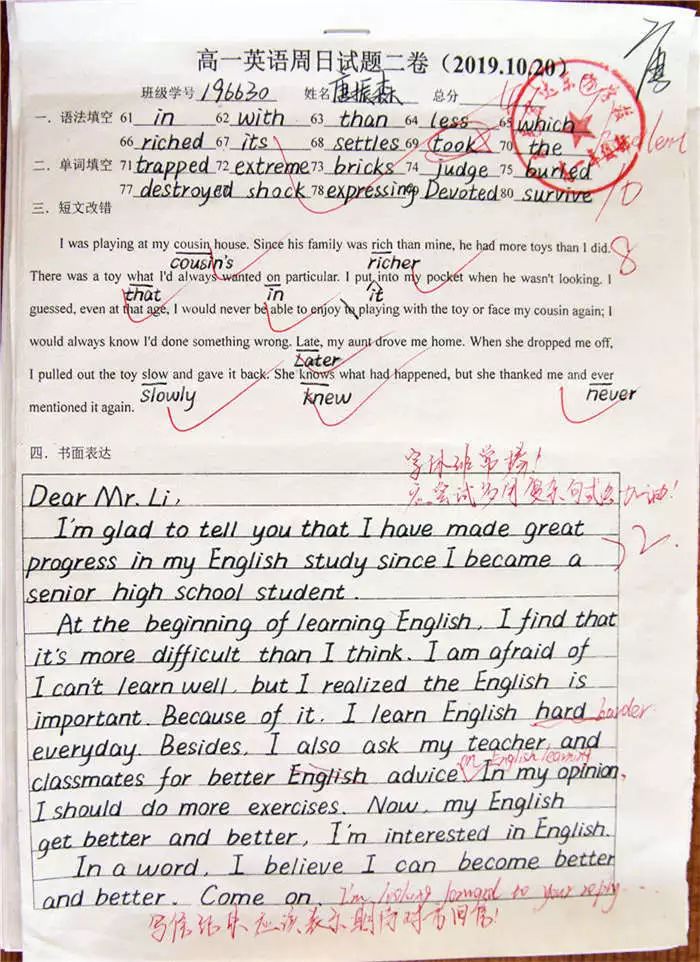 高一英语周日试题二卷（2019.10.20）
班级学号 196630 姓名 唐振森 总分
一．语法填空 61 in 62 with 63 than 64 less 65 which
66 riched 67 its 68 settles 69 took 70 the
二．单词填空 71 trapped 72 extreme 73 bricks 74 judge 75 buried
77 destroyed shock 78 expressing Devoted 80 survive
10
三．短文改错
I was playing at my cousin house. Since his family was rich than mine, he had more toys than I did.
8
cousin's richer
There was a toy what I'd always wanted on particular. I put into my pocket when he wasn't looking. I
that in it
guessed, even at that age, I would never be able to enjoy to playing with the toy or face my cousin again; I
would always know I'd done something wrong. Late, my aunt drove me home. When she dropped me off,
Later
I pulled out the toy slow and gave it back. She knows what had happened, but she thanked me and ever
slowly knew never
mentioned it again.
四．书面表达
字体非常棒！
应尝试多用复杂句式 加油！
Dear Mr. Li,
I'm glad to tell you that I have made great
progress in my English study since I became a
senior high school student.
At the beginning of learning English, I find that
it's more difficult than I think. I am afraid of
I can't learn well, but I realized the English is
important. Because of it, I learn English hard harder
everyday. Besides, I also ask my teacher and
classmates for better English advice on English learning. In my opinion,
I should do more exercises. Now, my English
get better and better, I'm interested in English.
In a word, I believe I can become better
and better. Come on. I'm looking forward to your reply...
写信结束应该表示期待对方回信！